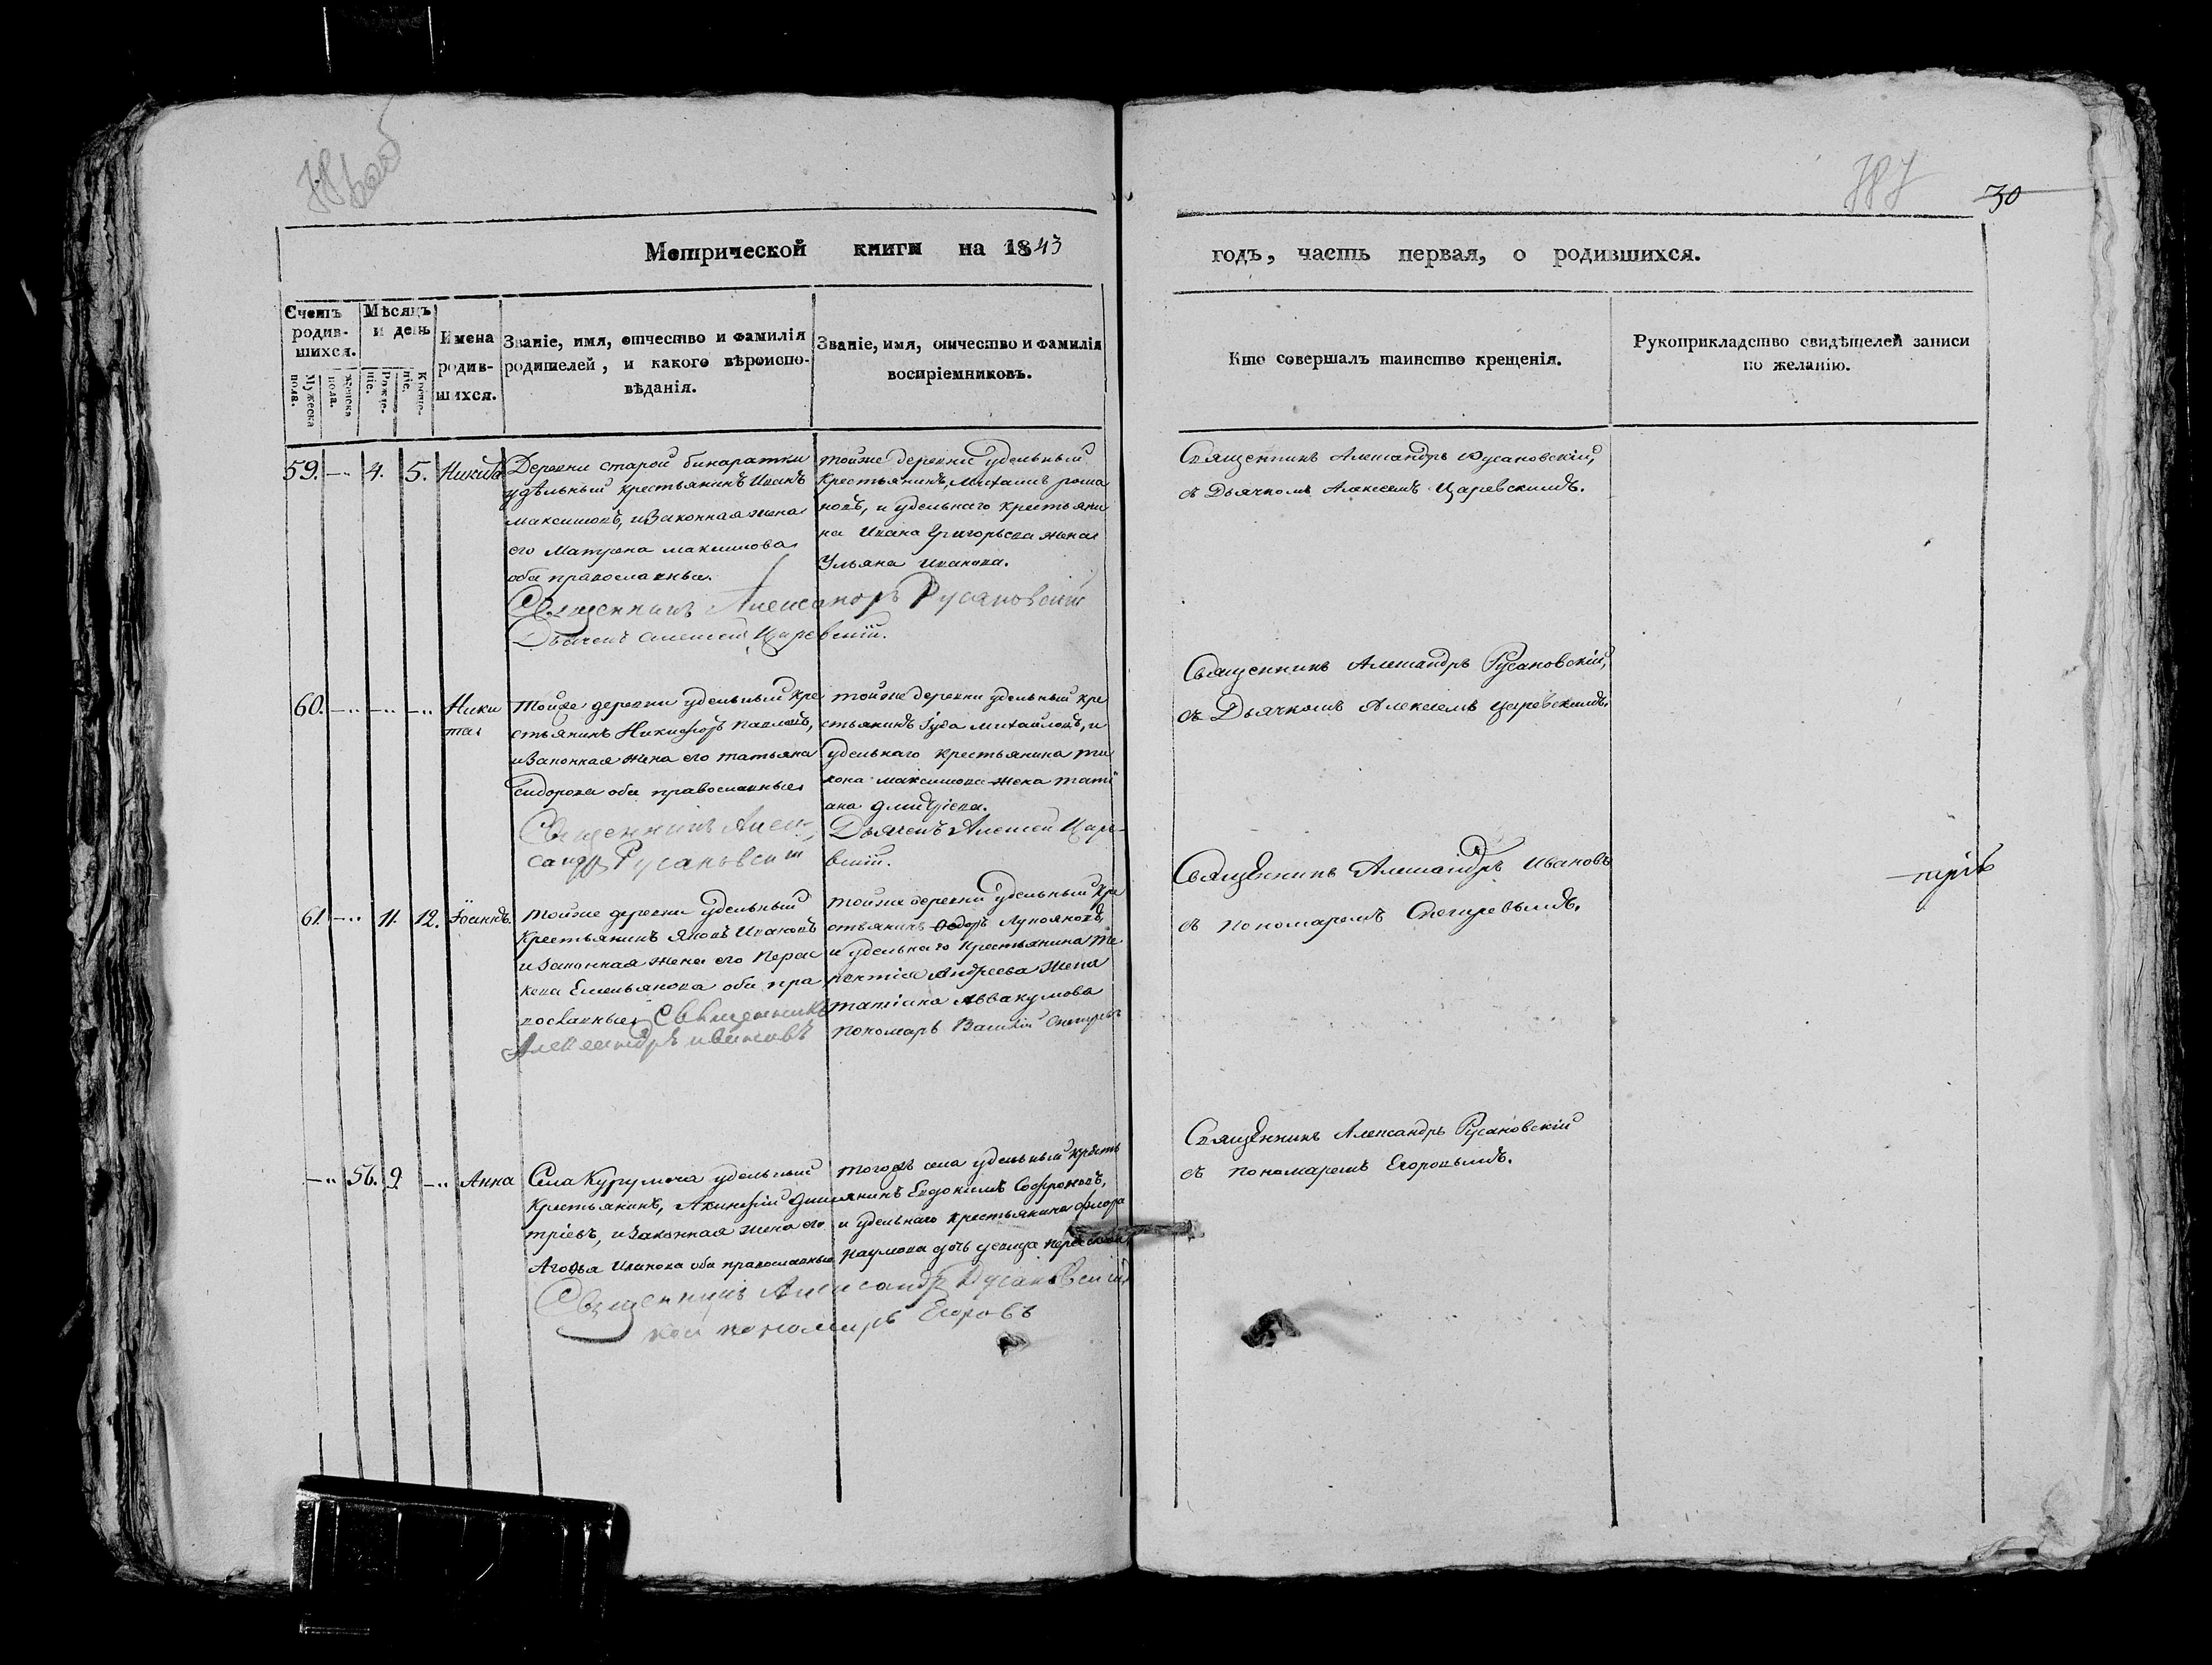 30
Метрической книги на 1843
годъ, часть первая, о родившихся.
Счетъ родив-шихся.
Мужеска пола.
Женска пола.
Мѣсяцъ и день
Рожде-ніе.
Креще-ніе.
Имена родив-шихся.
Званіе, имя, отчество и фамилія
родителей, и какого вѣроиспо-
вѣданія.
Званіе, имя, отчество и фамилія
воспріемниковъ.
Кто совершалъ таинство крещенія.
Рукоприкладство свидѣтелей записи
по желанію.
59. 4. 5. Никита
Деревни старой бинаратки
удѣльный крестьянинъ Иванъ
максимовъ, и законная жена
его Матрена максимова
оба православные.
Священникъ Александръ Русановскій
Дьячекъ Алексей Царевскій.
тойже деревни удельный
крестьянинъ, Михаилъ рома
новъ, и удельнаго крестьяни
на Ивана Григорьева жена
Ульяна Иванова.
Священникъ Александръ Русановскій,
съ Дьячкомъ Алексеемъ Царевскимъ.
60. Ники
та
Тойже деревни удельный кре
стьянинъ Никифоръ Павловъ,
и законная жена его татьяна
сидорова оба православные
Священникъ Алек-
сандръ Русановскій
тойже деревни удельный кре
стьянинъ Іуда Михайловъ, и
удельнаго крестьянина ти
хона максимова жена тати
ана дмитріева.
Дьячекъ Алексей Царе-
вскій.
Священникъ Александръ Русановскій,
съ Дьячкомъ Алексеемъ Царевскимъ.
61. 11. 12. Іоаннъ.
Тойже деревни удельный
крестьянинъ Яковъ Ивановъ
и законная жена его Парас
кева Емельянова оба пра
вославные Священникъ
Александръ Ивановъ
тойже деревни удельный кре
стьянинъ Ѳедоръ Лукояновъ,
и удельнаго крестьянина Те
рентія Андреева жена
татіана Аввакумова
пономарь Василій
Священникъ Александръ Ивановъ
съ пономаремъ Снегиревымъ.
56. 9. Анна
Села Курумоча удельный
крестьянинъ, Акиндинъ Дми
тріевъ, и законная жена его
Агафья Иванова оба православные
Священникъ Александръ Русановскій
пономарь Егоровъ
тогожъ села удельный кресть
янинъ Евдокимъ Софроновъ,
и удельнаго крестьянина флора
наумова дочь девица параскева
Священникъ Александръ Русановскій
съ пономаремъ Егоровымъ.